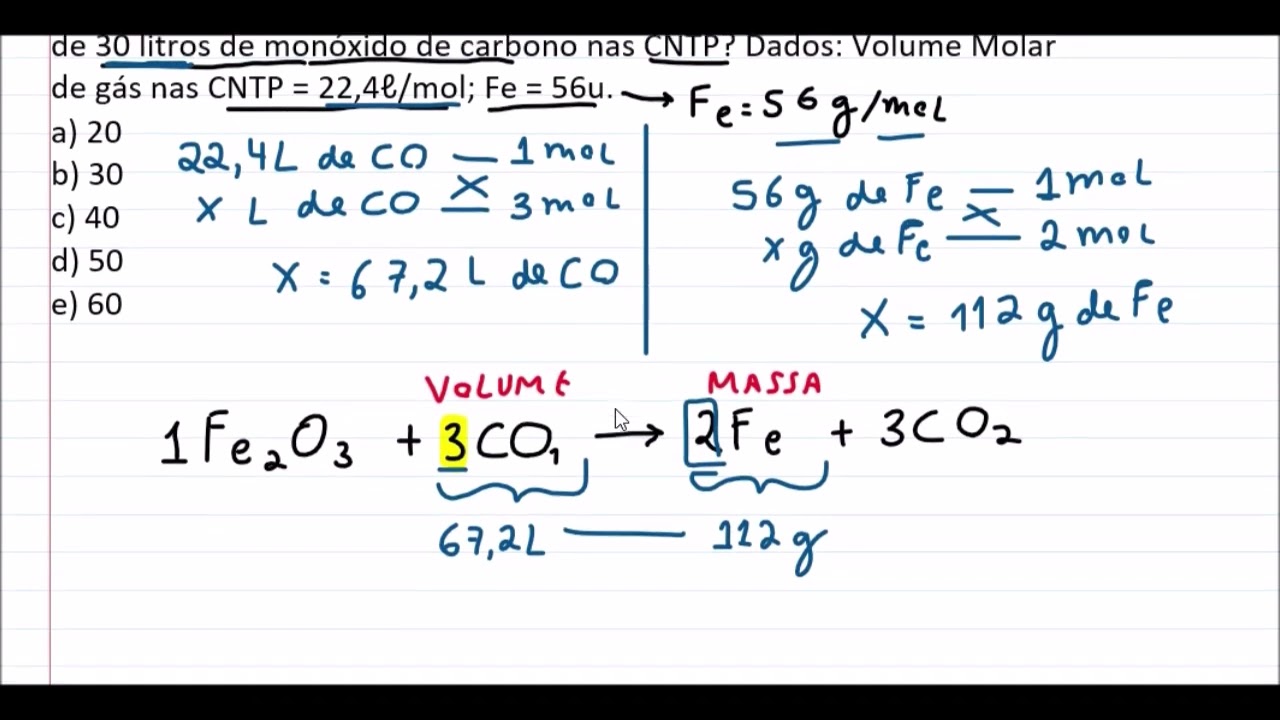 de 30 litros de monóxido de carbono nas CNTP? Dados: Volume Molar
de gás nas CNTP = 22,4ℓ/mol; Fe = 56u. → Fe = 56 g/mol
a) 20
b) 30
c) 40
d) 50
e) 60
22,4L de CO — 1 mol
x L de CO — 3 mol
X = 67,2 L de CO
56 g de Fe — 1 mol
x g de Fe — 2 mol
X = 112 g de Fe
VOLUME MASSA
1Fe₂O₃ + 3CO₁ → 2Fe + 3CO₂
67,2L — 112 g